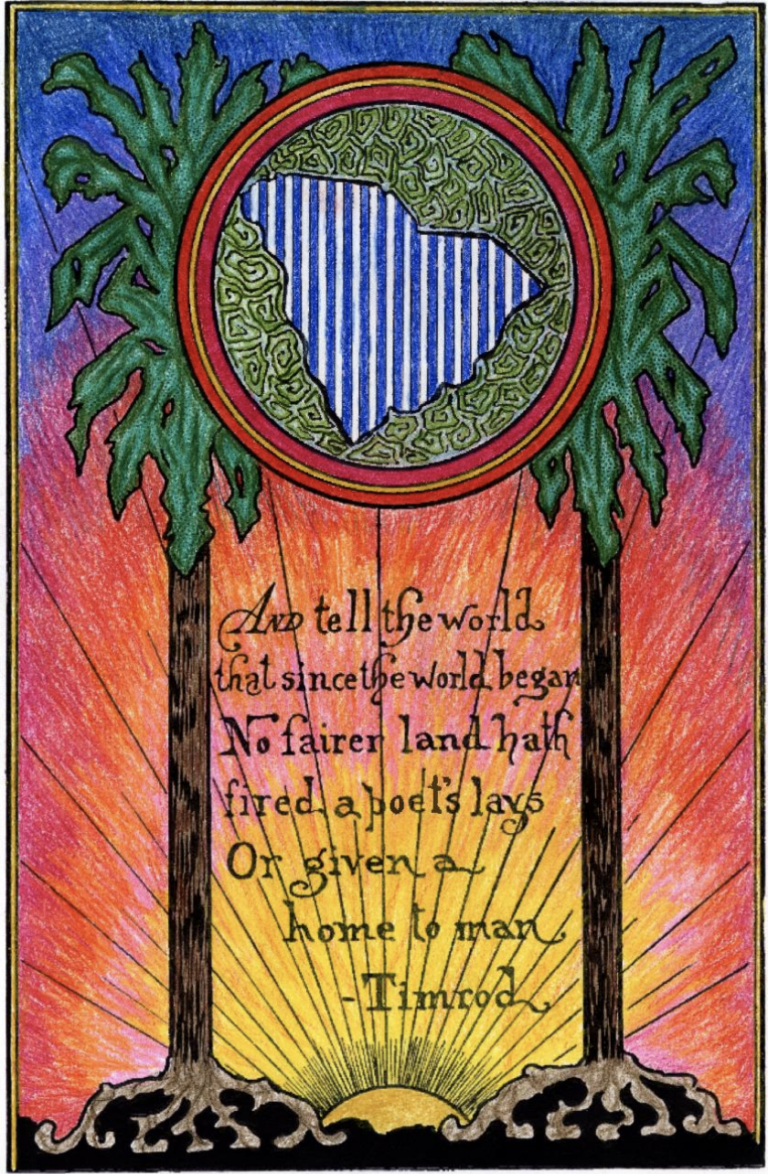 And tell the world
that since the world began
No fairer land hath
fired a poet's lays
Or given a
home to man
-Timrod